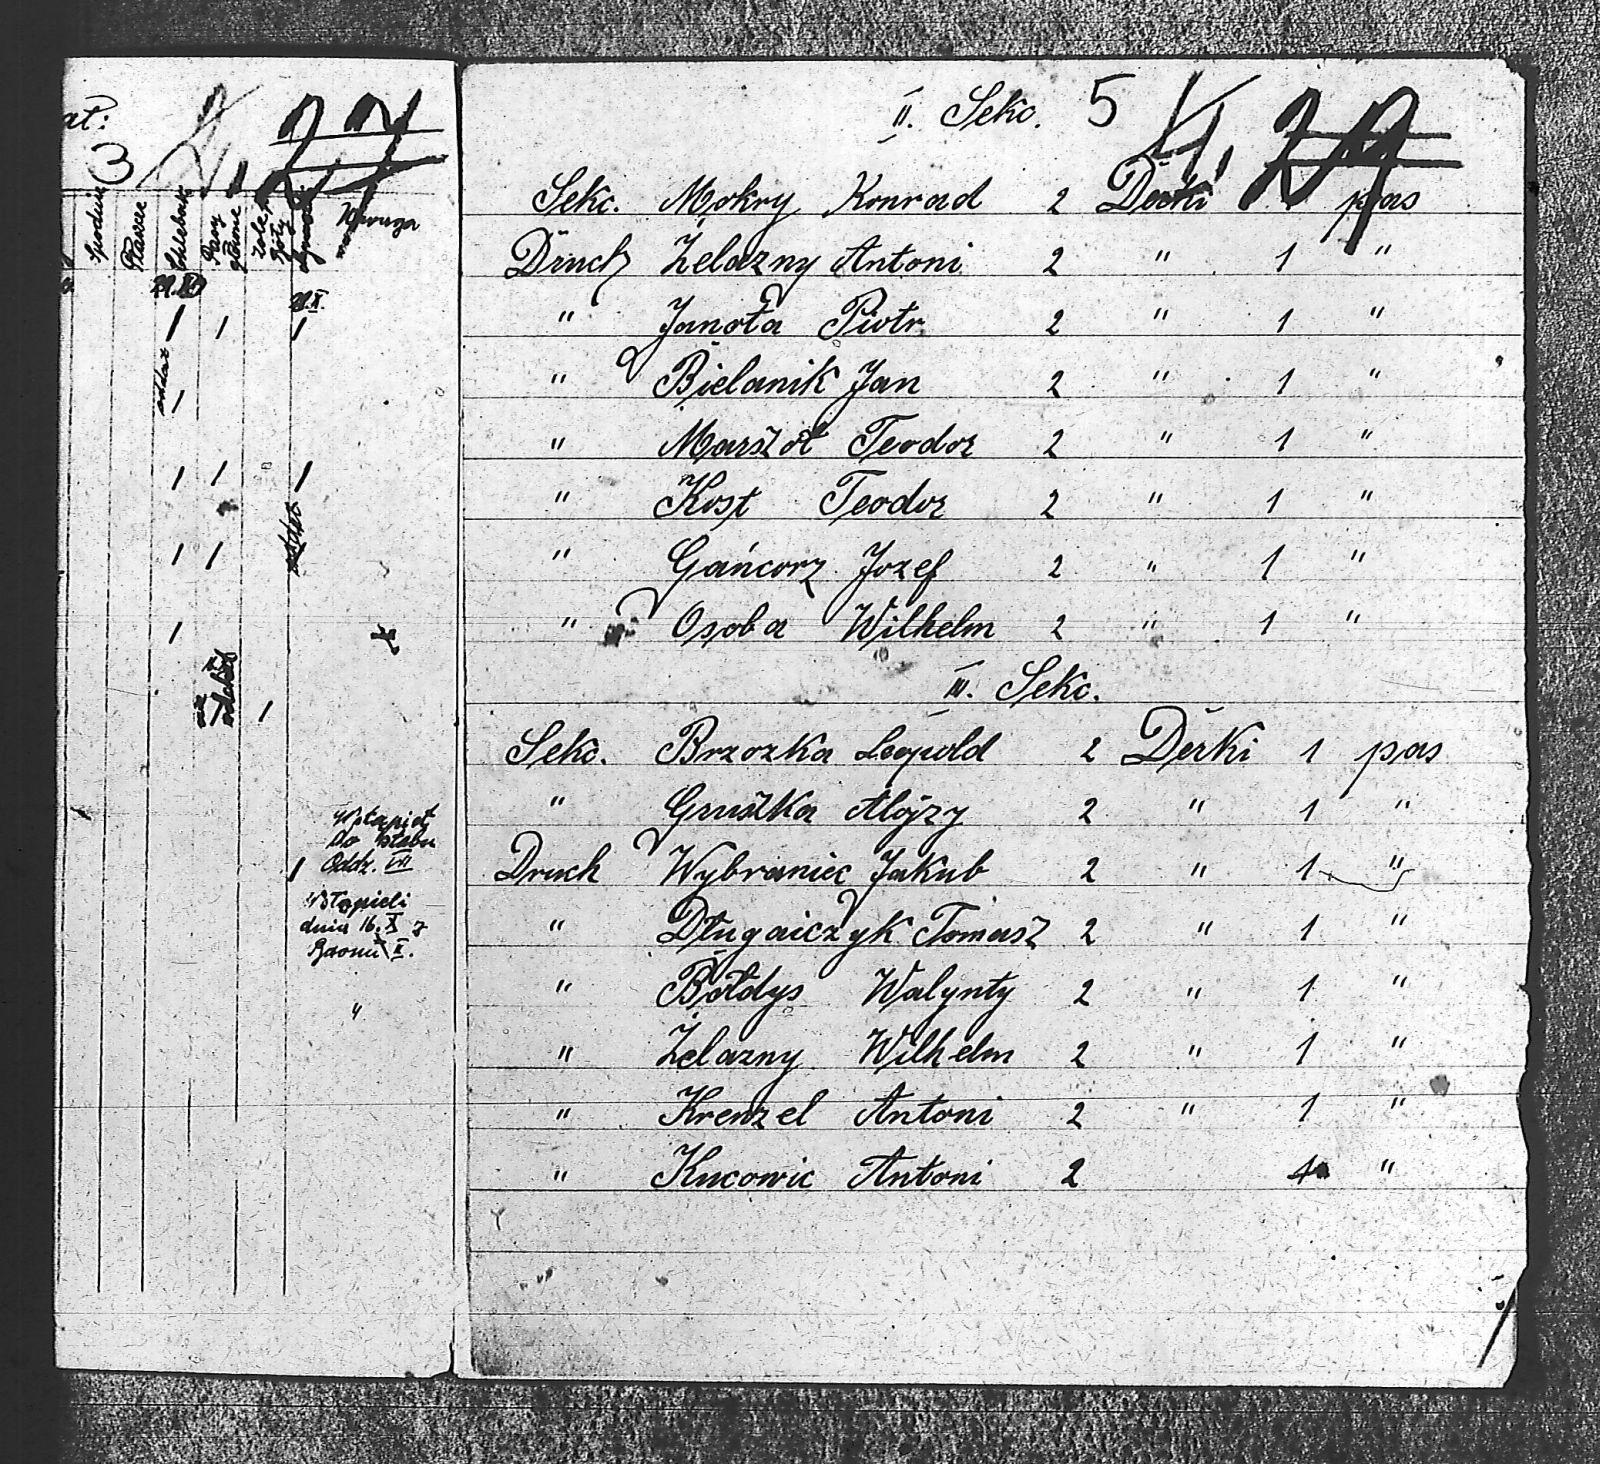 at:
3
27
Spodnie
Płaszcz
Chlebak
Pasy
główne
Uwaga
21.X
oddał
oddał
Wstąpił
do sztabu
Oddz. III
Wstąpieli
dnia 16. X z
Baonu II.
"
II. Sekc. 5 4, 29
Sekc. Mokry Konrad 2 Derki 1 pas
Druch Żelazny Antoni 2 " 1 "
" Janota Piotr 2 " 1 "
" Bielanik Jan 2 " 1 "
" Marszoł Teodor 2 " 1 "
" Kost Teodor 2 " 1 "
" Gańcorz Jozef 2 " 1 "
" Osoba Wilhelm 2 " 1 "
III. Sekc.
Sekc. Brzozka Leopold 2 Derki 1 pas
" Gruszka Alojzy 2 " 1 "
Druch Wybraniec Jakub 2 " 1 "
" Długaiczyk Tomasz 2 " 1 "
" Bołdys Walynty 2 " 1 "
" Żelazny Wilhelm 2 " 1 "
" Krenzel Antoni 2 " 1 "
" Kucowic Antoni 2 1 "